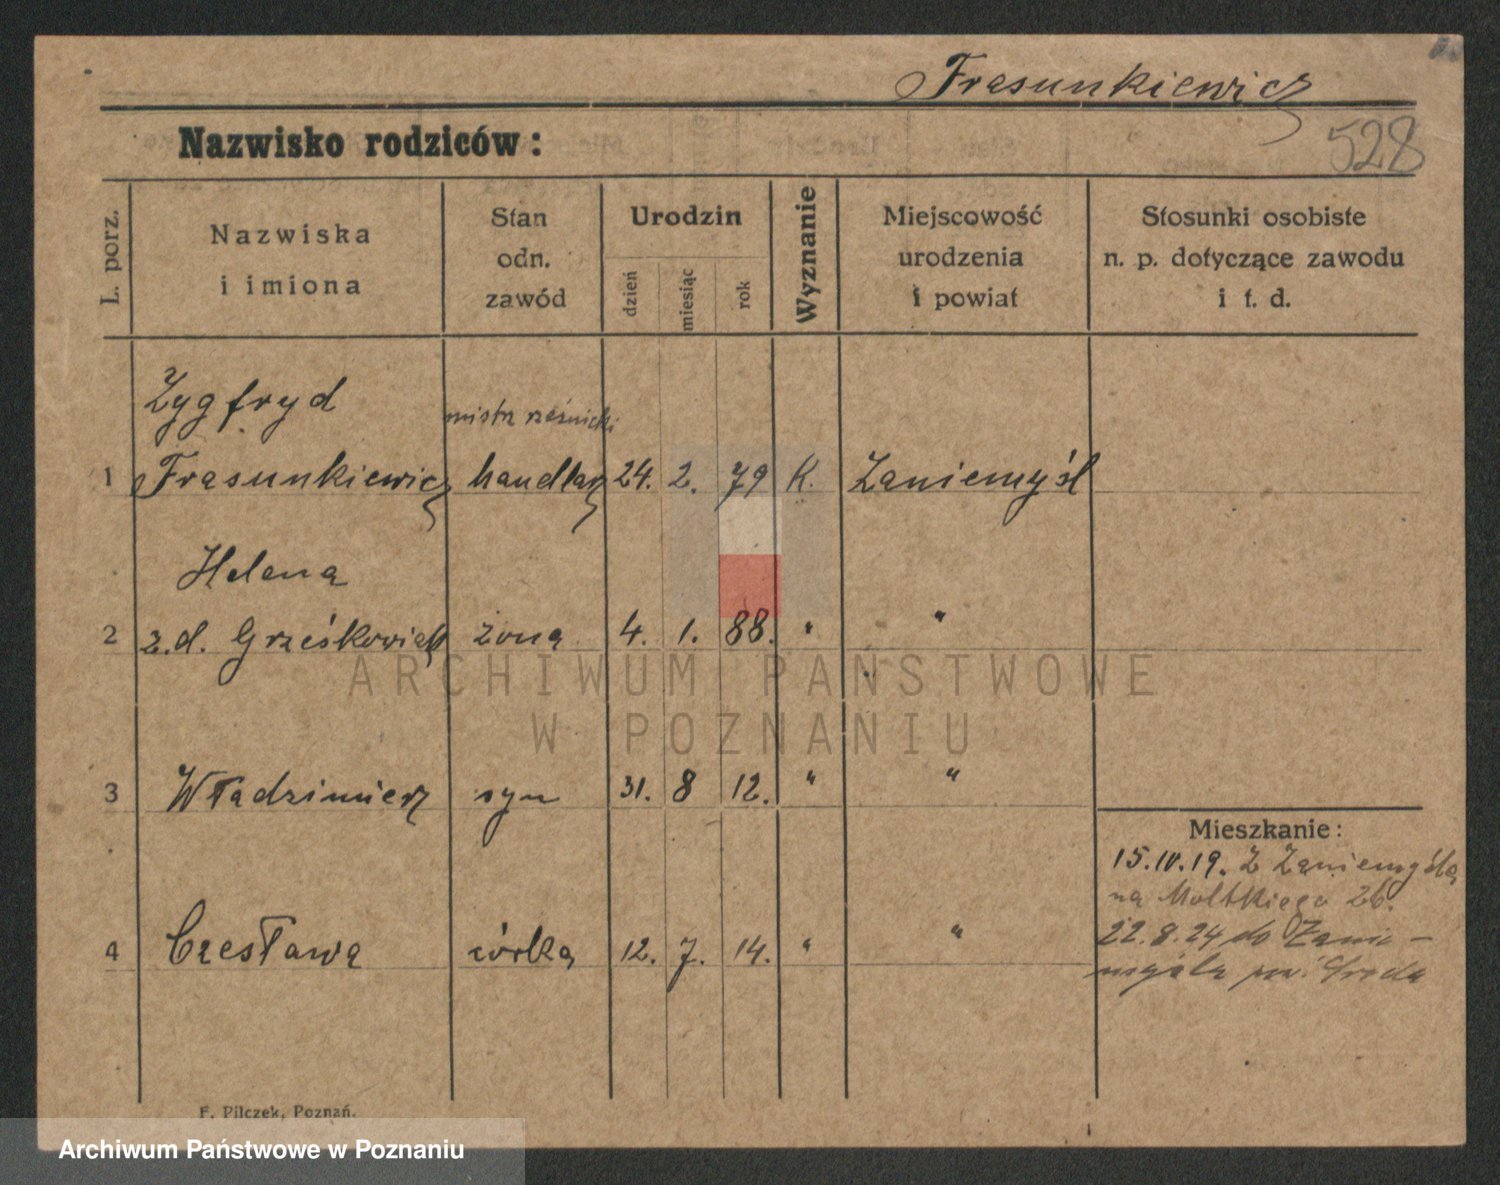 Frasunkiewicz
Nazwisko rodziców:
528
L. porz.
Nazwiska
i imiona
Stan
odn.
zawód
Urodzin
dzień
miesiąc
rok
Wyznanie
Miejscowość
urodzenia
i powiat
Stosunki osobiste
n. p. dotyczące zawodu
i t. d.
Zygfryd
mistrz rzeźnicki
1 Frasunkiewicz handlarz 24. 2. 79 K. Zaniemyśl
Helena
2 z.d. Grześkowiak żona 4. 1. 88. " "
ARCHIWUM PAŃSTWOWE
W POZNANIU
3 Władzimierz syn 31. 8 12. " "
Mieszkanie:
15.IV.19. Z Zaniemyśla
na Moltkiego 26.
4 Czesława córka 12. 7. 14. " "
22.8.24 do Zanie-
myśla pow. Środa
F. Pilczek, Poznań.
Archiwum Państwowe w Poznaniu